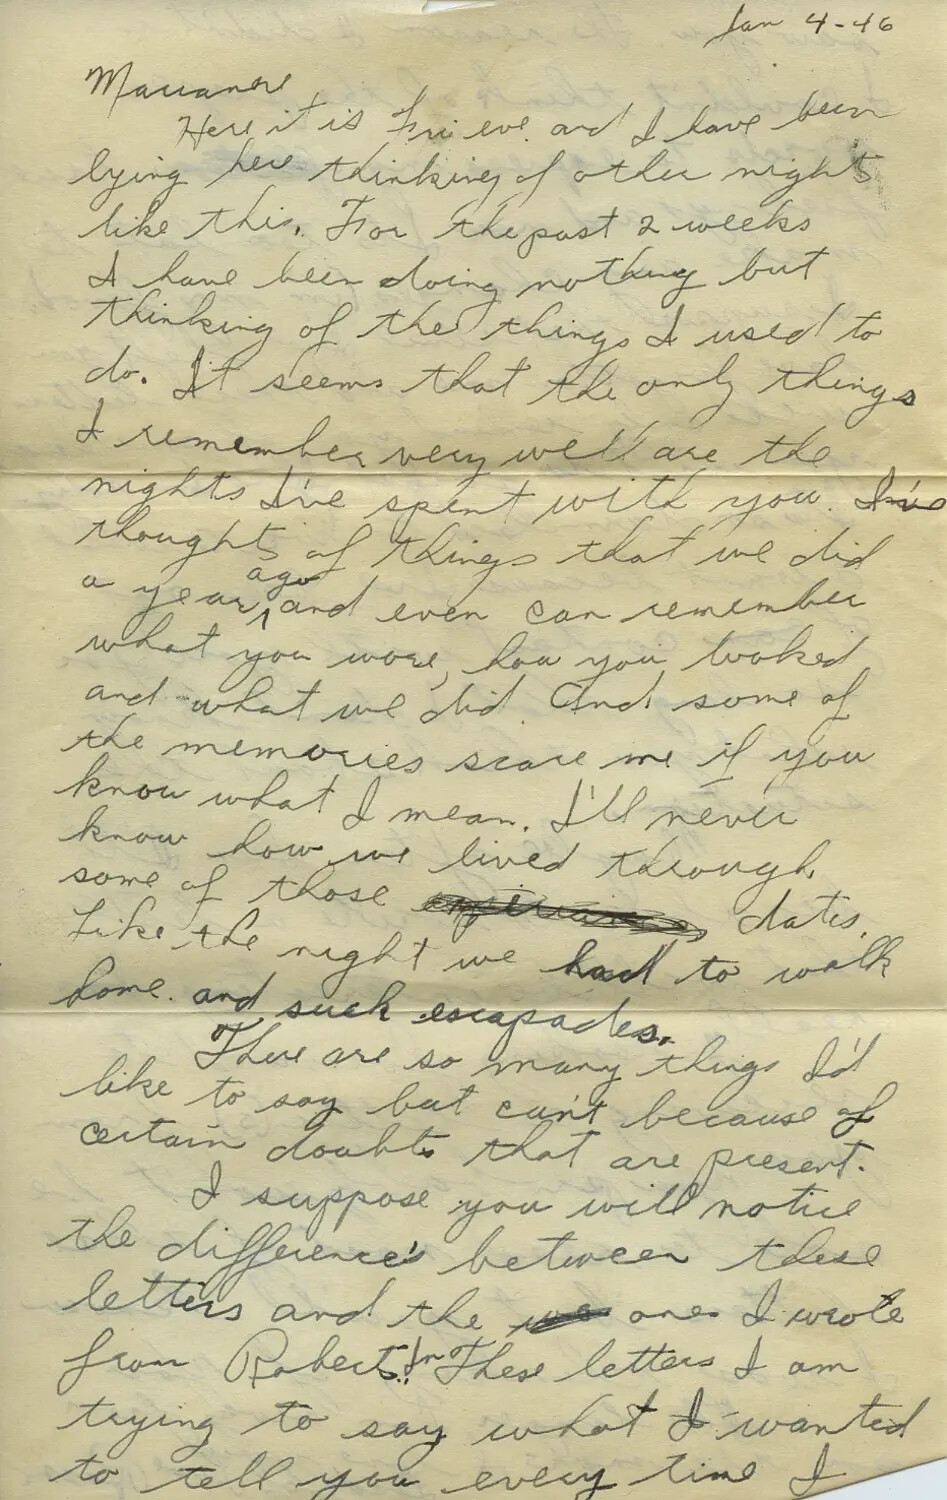 Jan 4-46
Marianne
Here it is Fri eve and I have been
lying here thinking of other nights
like this. For the past 2 weeks
I have been doing nothing but
thinking of the things I used to
do. It seems that the only things
I remember very well are the
nights I've spent with you. I've
thought of things that we did
a year ago and even can remember
what you wore, how you looked
and what we did. And some of
the memories scare me if you
know what I mean. I'll never
know how we lived through
some of those dates.
Like the night we had to walk
home. and such escapades.
There are so many things I'd
like to say but can't because of
certain doubts that are present.
I suppose you will notice
the difference's between these
letters and the ones I wrote
from Roberts. In These letters I am
trying to say what I wanted
to tell you every time I